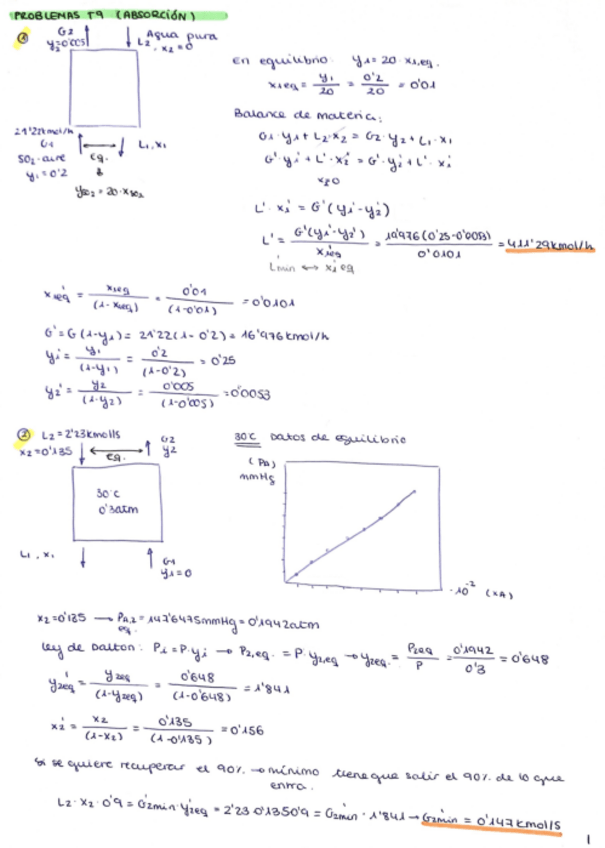 PROBLEMAS T9 (ABSORCIÓN)
① G2 y2=0'005 L2, x2=0 Agua pura
21'22kmol/h G1 SO2-aire y1=0'2
L1, x1
eq.
ySO2=20·xSO2
en equilibrio: y1=20·x1,eq.
x1eq = y1/20 = 0'2/20 = 0'01
Balance de materia:
G1·y1+L2·x2 = G2·y2+L1·x1
G'·y1'+L'·x2' = G'·y2'+L'·x1'
x2=0
L'·x1' = G'(y1'-y2')
L' = G'(y1'-y2')/x1'eq = 16'976(0'25-0'0053)/0'0101 = 411'29kmol/h
L'min ↔ x1'eq
x1'eq = x1eq/(1-x1eq) = 0'01/(1-0'01) = 0'0101
G'=G(1-y1)= 21'22(1-0'2)= 16'976kmol/h
y1' = y1/(1-y1) = 0'2/(1-0'2) = 0'25
y2' = y2/(1-y2) = 0'005/(1-0'005) = 0'0053
② L2=2'23kmol/s x2=0'135
G2 y2
eq.
30°C
0'3atm
L1, x1
G1 y1=0
30°C Datos de equilibrio
(PA)
mmHg
·10⁻² (xA)
x2=0'135 → PA,2 eq. = 147'6475mmHg=0'1942atm
Ley de Dalton: Pi=P·yi → P2,eq. = P·y2,eq → y2eq. = P2eq/P = 0'1942/0'3 = 0'648
y2'eq = y2eq/(1-y2eq) = 0'648/(1-0'648) = 1'841
x2' = x2/(1-x2) = 0'135/(1-0'135) = 0'156
Si se quiere recuperar el 90% → mínimo tiene que salir el 90% de lo que
entra.
L2·x2·0'9 = G2'min·y2'eq = 2'23·0'135·0'9 = G2'min·1'841 → G2'min = 0'147kmol/s
1